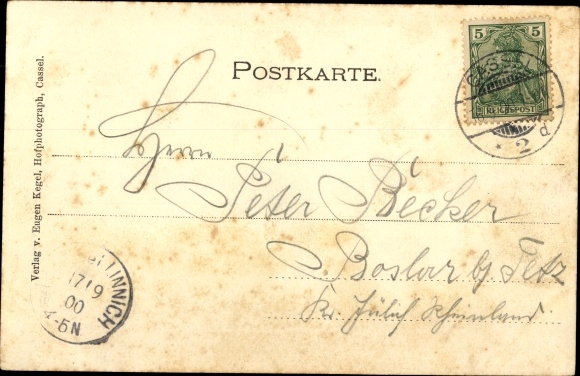 POSTKARTE.
5 5
REICHSPOST
CASSEL
* 2 d
Verlag v. Eugen Kegel, Hofphotograph, Cassel.
Herrn
Peter Becker
Boslar b/ Tetz
Kr. Jülich Rheinland
LINNICH
17/9
00
5N